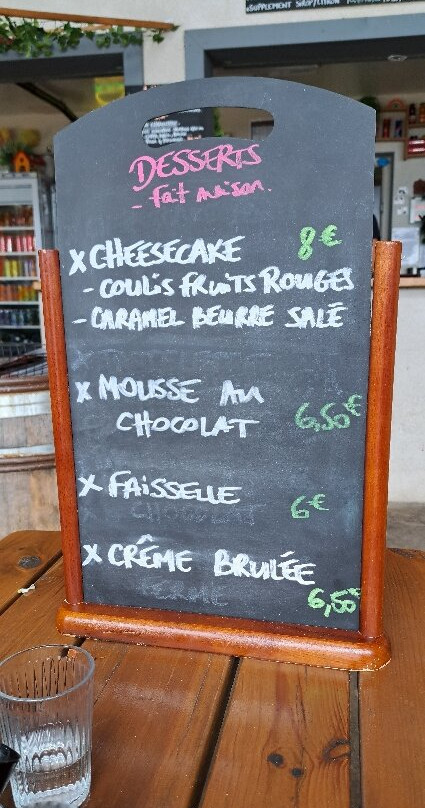 SUPPLEMENT SIROP/CITRON
DESSERTS
- fait maison.
X CHEESECAKE 8€
- COULIS FRUITS ROUGES
- CARAMEL BEURRE SALÉ
X MOUSSE AU
CHOCOLAT 6,50€
X FAISSELLE
6€
X CRÊME BRULÉE
6,50€